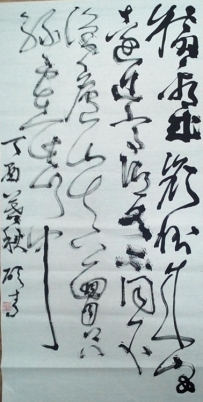 橫看成嶺側成峰
遠近高低各不同不
識廬山真面目只
緣身在此山中
丁酉暮秋